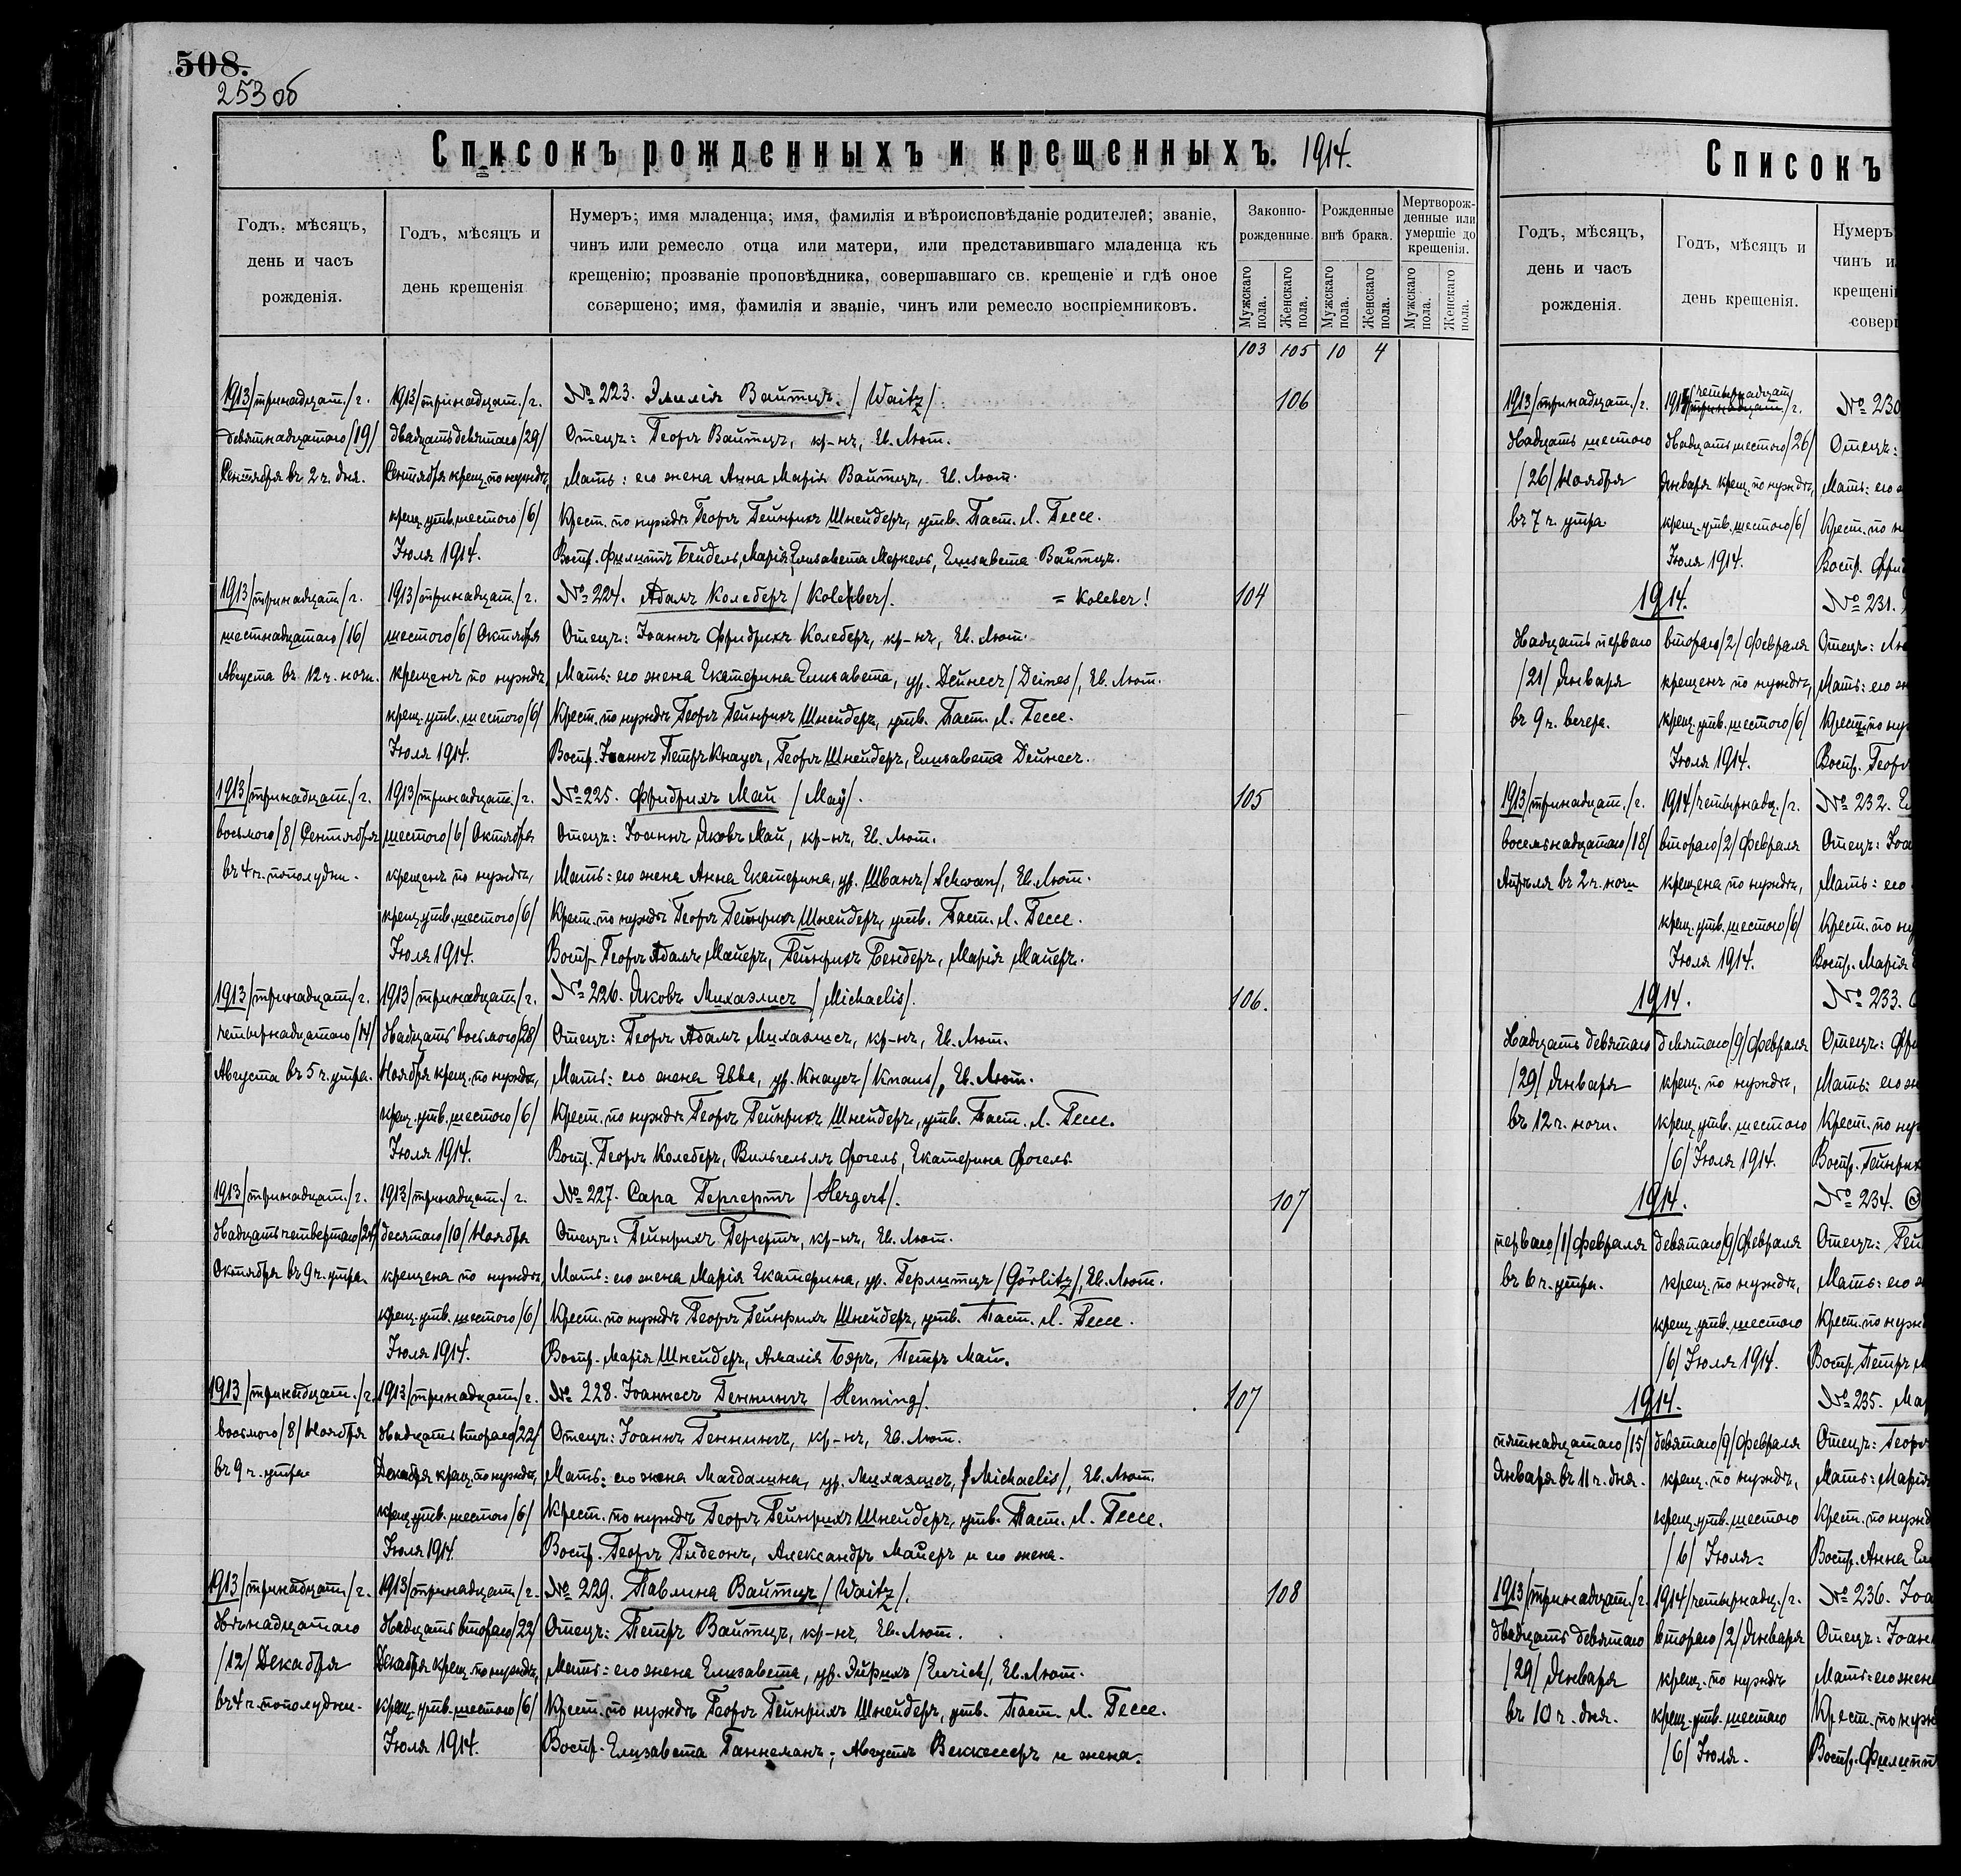 508.
253 об
Списокъ рожденныхъ и крещенныхъ. 1914.
Годъ, мѣсяцъ,
день и часъ
рожденія.
Годъ, мѣсяцъ и
день крещенія
Нумеръ; имя младенца; имя, фамилія и вѣроисповѣданіе родителей; званіе,
чинъ или ремесло отца или матери, или представившаго младенца къ
крещенію; прозваніе проповѣдника, совершавшаго св. крещеніе и гдѣ оное
совершено; имя, фамилія и званіе, чинъ или ремесло воспріемниковъ.
Законно-
рожденные.
Рожденные
внѣ брака.
Мертворож-
денные или
умершіе до
крещенія.
Мужскаго пола.
Женскаго пола.
Мужскаго пола.
Женскаго пола.
Мужскаго пола.
Женскаго пола.
103 105 10 4
1913/тринадцат./г. 1913/тринадцат./г. № 223. Эмилія Вайтцъ. /Waitz/. 106
девятнадцатаго/19/ двадцать девятаго/29/ Отецъ: Георгъ Вайтцъ, кр-нъ, Ев. Лют.
Сентября въ 2 ч. дня. Сентября крещ. по нуждѣ, Мать: его жена Анна Марія Вайтцъ, Ев. Лют.
крещ. утв. шестого/6/ Крест. по нуждѣ Георгъ Гейнрихъ Шнейдеръ, утв. Паст. Л. Гессе.
Іюля 1914. Воспр. Филиппъ Бейдель, Марія Елисавета Меркель, Елисавета Вайтцъ.
1913/тринадцат/г. 1913/тринадцат./г. № 224. Адамъ Колеберъ /Koleber/. = Koleber! 104
шестнадцатаго/16/ шестого/6/ Октября Отецъ: Іоаннъ Фридрихъ Колеберъ, кр-нъ, Ев. Лют.
Августа въ 12 ч. ночи. крещенъ по нуждѣ, Мать: его жена Екатерина Елисавета, ур. Дейнесъ /Deines/, Ев. Лют.
крещ. утв. шестого/6/ Крест. по нуждѣ Георгъ Гейнрихъ Шнейдеръ, утв. Паст. Л. Гессе.
Іюля 1914. Воспр. Іоаннъ Петръ Кнаусъ, Георгъ Шнейдеръ, Елисавета Дейнесъ.
1913/тринадцат./г. 1913/тринадцат./г. № 225. Фридрихъ Май /Maÿ/. 105
восьмого/8/ Сентября шестого/6/ Октября Отецъ: Іоаннъ Яковъ Май, кр-нъ, Ев. Лют.
въ 4 ч. пополудни. крещенъ по нуждѣ, Мать: его жена Анна Екатерина, ур. Шванъ /Schwan/, Ев. Лют.
крещ. утв. шестого/6/ Крест. по нуждѣ Георгъ Гейнрихъ Шнейдеръ, утв. Паст. Л. Гессе.
Іюля 1914. Воспр. Георгъ Адамъ Майеръ, Гейнрихъ Бендеръ, Марія Майеръ.
1913/тринадцат/г. 1913/тринадцат/г. № 226. Яковъ Михаэлисъ /Michaelis/. 106.
четырнадцатаго/14/ двадцать восьмого/28/ Отецъ: Георгъ Адамъ Михаэлисъ, кр-нъ, Ев. Лют.
Августа въ 5 ч. утра. Ноября крещ. по нуждѣ, Мать: его жена Евва, ур. Кнаусъ /Knaus/, Ев. Лют.
крещ. утв. шестого/6/ Крест. по нуждѣ Георгъ Гейнрихъ Шнейдеръ, утв. Паст. Л. Гессе.
Іюля 1914. Воспр. Георгъ Колеберъ, Вильгельмъ Фогель, Екатерина Фогель.
1913/тринадцат./г. 1913/тринадцат./г. № 227. Сара Гергертъ /Hergert/. 107
двадцать четвертаго/24/ десятаго/10/ Ноября Отецъ: Гейнрихъ Гергертъ, кр-нъ, Ев. Лют.
Октября въ 9 ч. утра. крещена по нуждѣ, Мать: его жена Марія Екатерина, ур. Герлитцъ /Görlitz/, Ев. Лют.
крещ. утв. шестого/6/ Крест. по нуждѣ Георгъ Гейнрихъ Шнейдеръ, утв. Паст. Л. Гессе.
Іюля 1914. Воспр. Марія Шнейдеръ, Амалія Бэръ, Петръ Май.
1913/тринадцат./г. 1913/тринадцат/г. № 228. Іоаннесъ Геннингъ /Henning/. 107
восьмого/8/ Ноября двадцать второго/22/ Отецъ: Іоаннъ Геннингъ, кр-нъ, Ев. Лют.
въ 9 ч. утра. Декабря крещ. по нуждѣ, Мать: его жена Магдалина, ур. Михаэлисъ, /Michaelis/, Ев. Лют.
крещ. утв. шестого/6/ Крест. по нуждѣ Георгъ Гейнрихъ Шнейдеръ, утв. Паст. Л. Гессе.
Іюля 1914. Воспр. Георгъ Гидеонъ, Александръ Майеръ и его жена.
1913/тринадцат/г. 1913/тринадцат/г. № 229. Павлина Вайтцъ /Waitz/. 108
двѣнадцатаго двадцать второго/22/ Отецъ: Петръ Вайтцъ, кр-нъ, Ев. Лют.
/12/ Декабря Декабря крещ. по нуждѣ, Мать: его жена Елизавета, ур. Эйрихъ /Eurich/, Ев. Лют.
въ 4 ч. пополудни. крещ. утв. шестого/6/ Крест. по нуждѣ Георгъ Гейнрихъ Шнейдеръ, утв. Паст. Л. Гессе.
Іюля 1914. Воспр. Елизавета Ганнеманъ, Августъ Веккессеръ и жена.
Списокъ
Годъ, мѣсяцъ,
день и часъ
рожденія.
Годъ, мѣсяцъ и
день крещенія.
Нумеръ
чинъ и
крещені
совер
1913/тринадцат./г. 1914/четырнадцат/г. № 230
двадцать шестого двадцать шестого/26/ Отецъ:
/26/ Ноября Января крещ. по нуждѣ, Мать: его
въ 7 ч. утра крещ. утв. шестого/6/ Крест. по н
Іюля 1914. Воспр. Фри
1914. № 231.
двадцать перваго второго/2/ Февраля Отецъ:
/21/ Января крещенъ по нуждѣ, Мать: его
въ 9 ч. вечера. крещ. утв. шестого/6/ Крест. по ну
Іюля 1914. Воспр. Георг
1913/тринадцат./г. 1914/четырнадц./г. № 232.
восемнадцатаго/18/ второго/2/ Февраля Отецъ: Іоа
Апрѣля въ 2 ч. ночи крещена по нуждѣ, Мать: его
крещ. утв. шестого/6/ Крест. по ну
Іюля 1914. Воспр. Марія
1914. № 233.
двадцать девятаго девятаго/9/ Февраля Отецъ: Фри
/29/ Января крещ. по нуждѣ, Мать: его ж
въ 12 ч. ночи. крещ. утв. шестого Крест. по ну
/6/ Іюля 1914. Воспр. Гейнрих
1914. № 234.
перваго/1/ Февраля девятаго/9/ Февраля Отецъ: Гей
въ 6 ч. утра. крещ. по нуждѣ, Мать: его
крещ. утв. шестого Крест. по нужд
/6/ Іюля 1914. Воспр. Петръ
1914. № 235. Ма
пятнадцатаго/15/ девятаго/9/ Февраля Отецъ: Георг
Января въ 11 ч. дня. крещ. по нуждѣ, Мать: Марія
крещ. утв. шестого Крест. по нужд
/6/ Іюля. Воспр. Анна Ел
1913/тринадцат./г. 1914/четырнадц./г. № 236. Іоа
двадцать девятаго второго/2/ Января Отецъ: Іоан
/29/ Января крещ. по нуждѣ Мать: его жен
въ 10 ч. дня. крещ. утв. шестого Крест. по нужд
/6/ Іюля. Воспр. Филипп